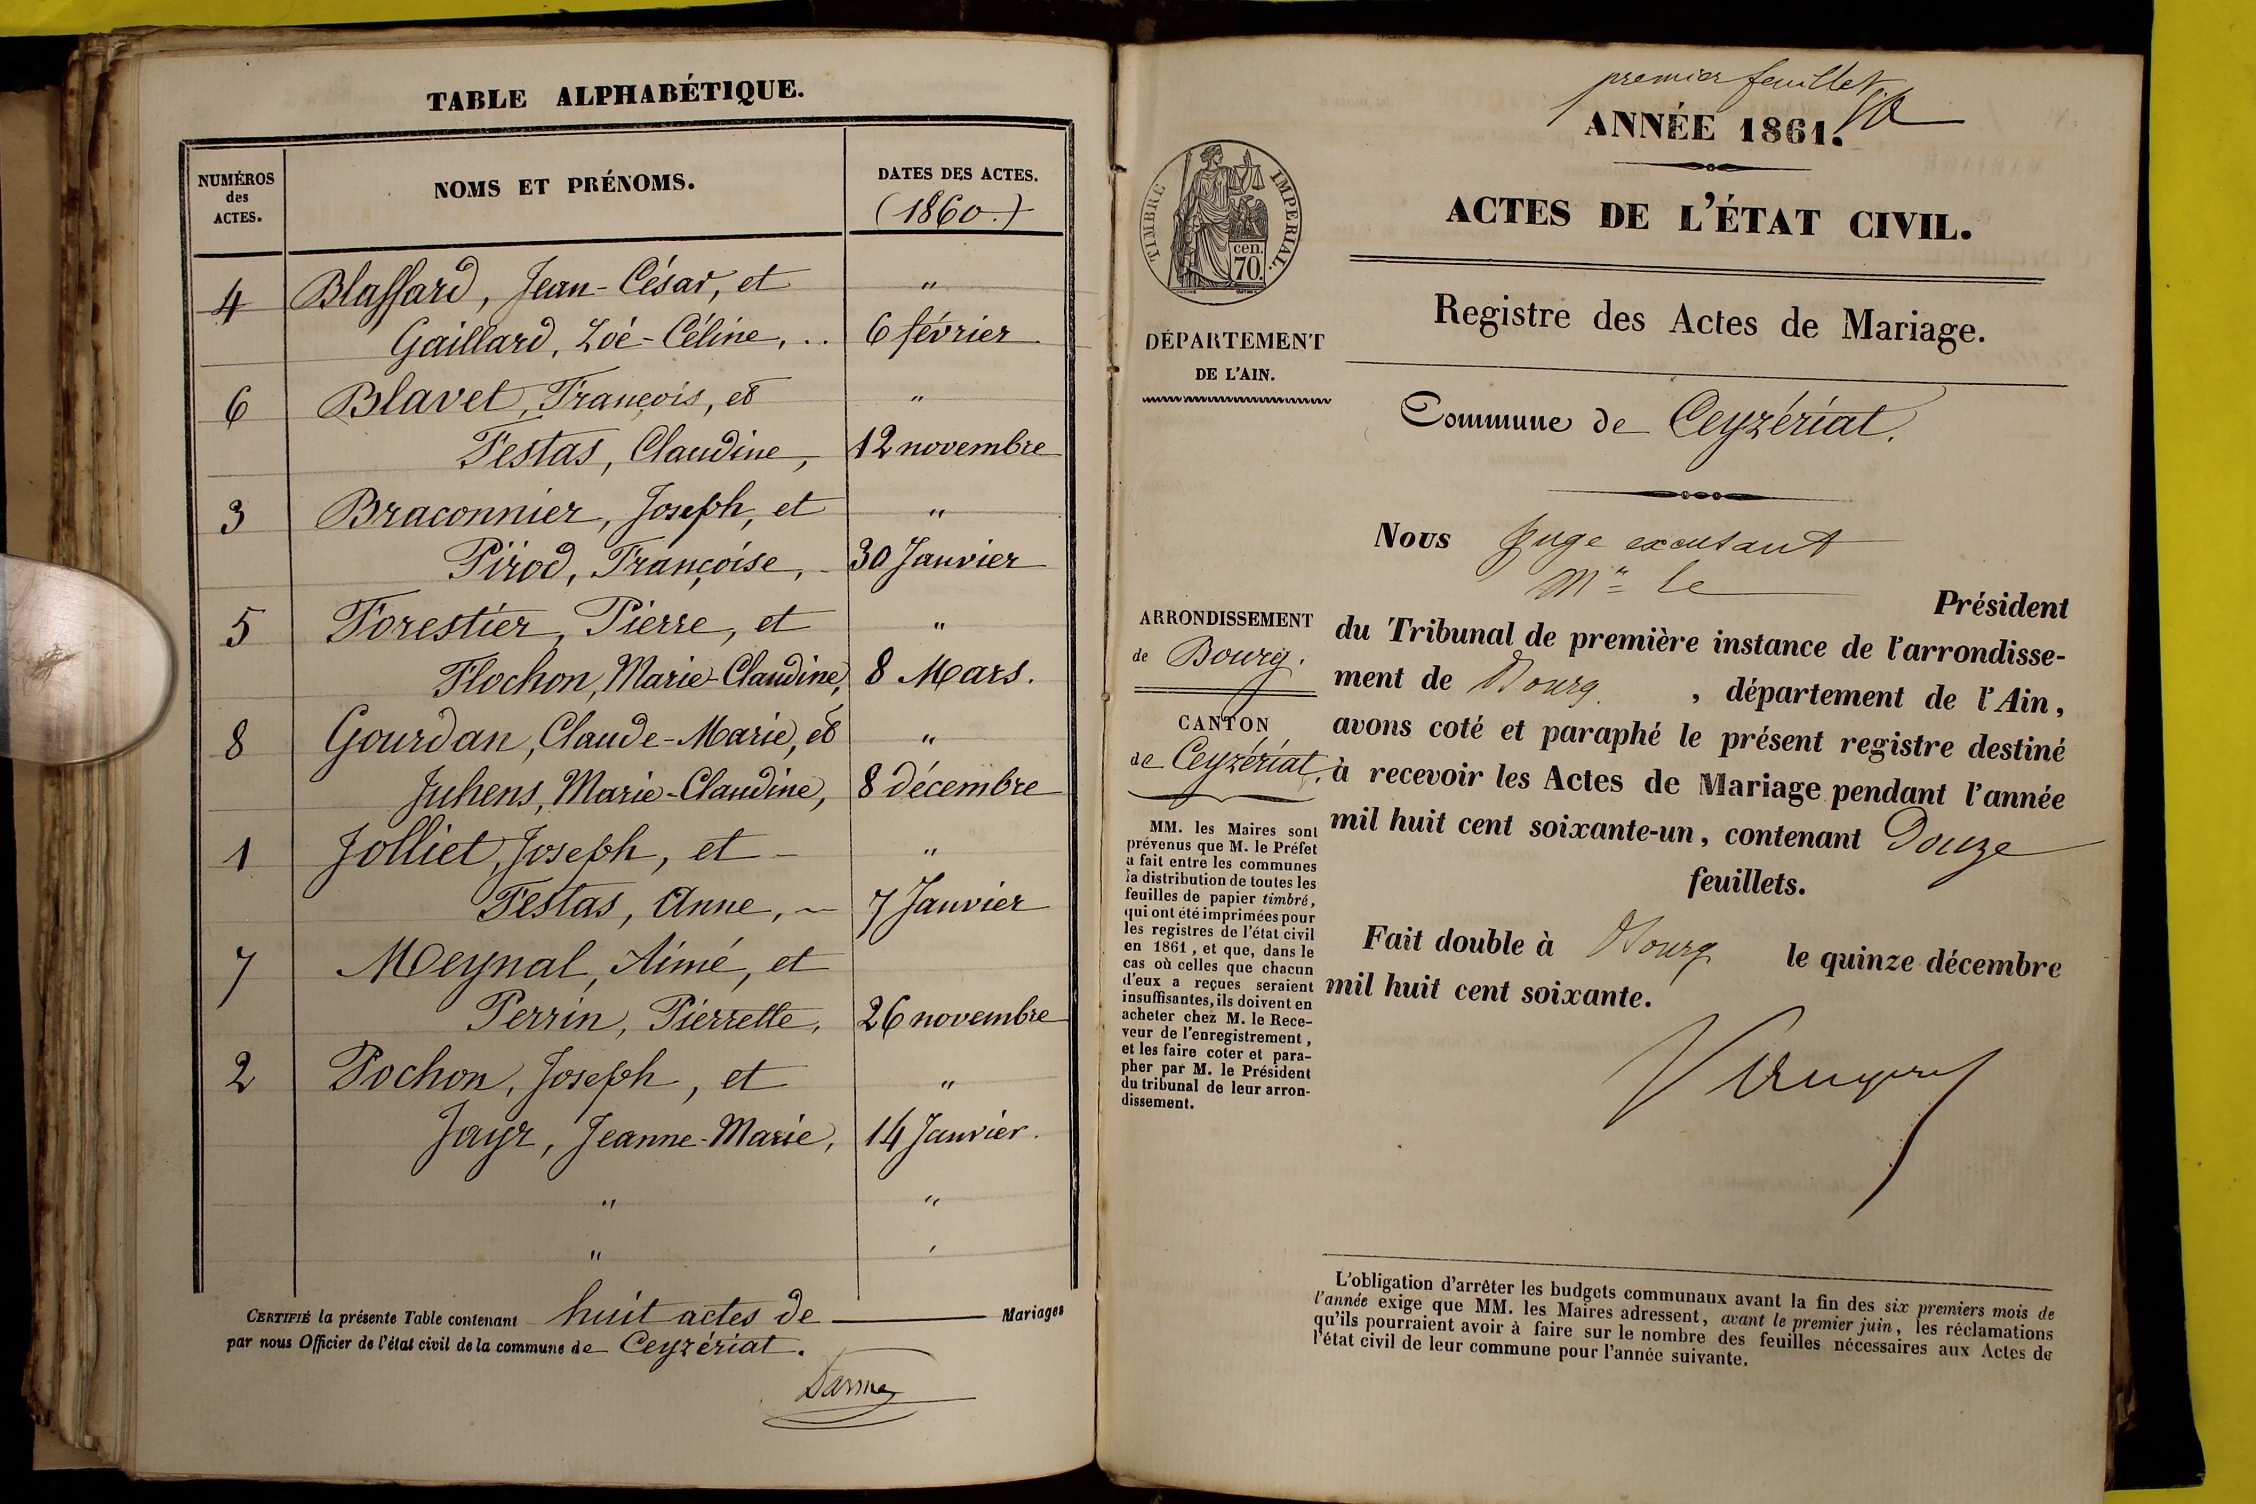 TABLE ALPHABÉTIQUE.
NUMÉROS
des
ACTES.
NOMS ET PRÉNOMS.
DATES DES ACTES.
(1860.)
4 Blaffard, Jean-César, et "
Gaillard, Zoé-Céline, .. 6 février
6 Blavet, François, et "
Festas, Claudine, 12 novembre
3 Braconnier, Joseph, et "
Pirod, Françoise, 30 Janvier
5 Forestier, Pierre, et "
Flochon, Marie-Claudine, 8 Mars.
8 Gourdan, Claude-Marie, et "
Juhens, Marie-Claudine, 8 décembre
1 Jolliet, Joseph, et "
Festas, Anne, 7 Janvier
7 Meynal, Aimé, et
Perrin, Pierrette, 26 novembre
2 Pochon, Joseph, et "
Jayr, Jeanne-Marie, 14 Janvier.
" "
"
CERTIFIÉ la présente Table contenant huit actes de Mariages
par nous Officier de l'état civil de la commune de Ceyzériat.
Darme
premier feuillet
ANNÉE 1861.
ACTES DE L'ÉTAT CIVIL.
TIMBRE IMPERIAL.
cen.
70.
Registre des Actes de Mariage.
DÉPARTEMENT
DE L'AIN.
Commune de Ceyzériat.
Nous Juge excusant
Mr le
Président
du Tribunal de première instance de l'arrondisse-
ment de Bourg, département de l'Ain,
avons coté et paraphé le présent registre destiné
à recevoir les Actes de Mariage pendant l'année
mil huit cent soixante-un, contenant Douze
feuillets.
Fait double à Bourg le quinze décembre
mil huit cent soixante.
ARRONDISSEMENT
de Bourg.
CANTON
de Ceyzériat.
MM. les Maires sont
prévenus que M. le Préfet
a fait entre les communes
la distribution de toutes les
feuilles de papier timbré,
qui ont été imprimées pour
les registres de l'état civil
en 1861, et que, dans le
cas où celles que chacun
d'eux a reçues seraient
insuffisantes, ils doivent en
acheter chez M. le Rece-
veur de l'enregistrement,
et les faire coter et para-
pher par M. le Président
du tribunal de leur arron-
dissement.
L'obligation d'arrêter les budgets communaux avant la fin des six premiers mois de
l'année exige que MM. les Maires adressent, avant le premier juin, les réclamations
qu'ils pourraient avoir à faire sur le nombre des feuilles nécessaires aux Actes de
l'état civil de leur commune pour l'année suivante.